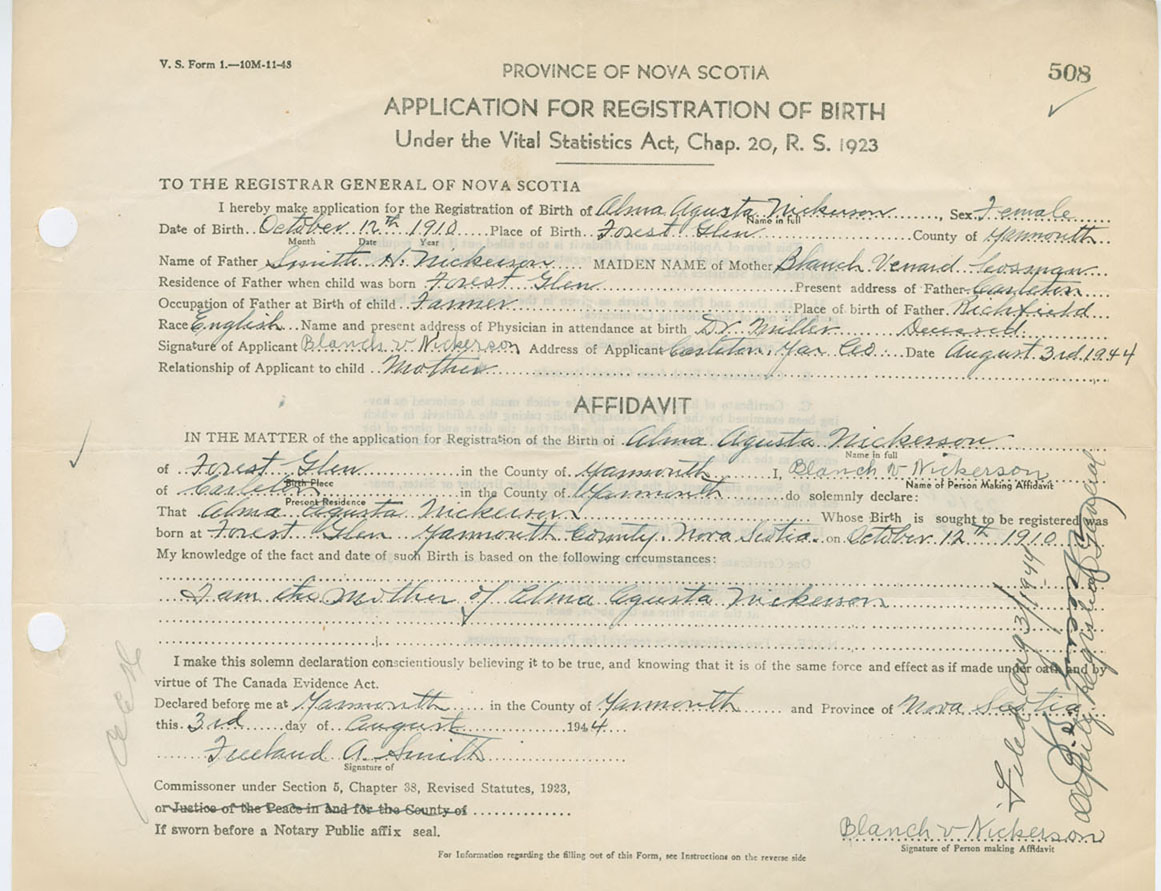 V. S. Form 1.—10M-11-43
PROVINCE OF NOVA SCOTIA
508
APPLICATION FOR REGISTRATION OF BIRTH
Under the Vital Statistics Act, Chap. 20, R. S. 1923
TO THE REGISTRAR GENERAL OF NOVA SCOTIA
I hereby make application for the Registration of Birth of Alma Agusta Nickerson, Sex Female
Name in full
Date of Birth October 12th 1910 Place of Birth Forest Glen County of Yarmouth
Month Date Year
Name of Father Smith H. Nickerson MAIDEN NAME of Mother Blanch Venard Crossman
Residence of Father when child was born Forest Glen Present address of Father Carleton
Occupation of Father at Birth of child Farmer Place of birth of Father Richfield
Race English Name and present address of Physician in attendance at birth Dr Miller Deceased
Signature of Applicant Blanch v Nickerson Address of Applicant Carleton, Yar Co Date August 3rd 1944
Relationship of Applicant to child Mother
AFFIDAVIT
IN THE MATTER of the application for Registration of the Birth of Alma Agusta Nickerson
Name in full
of Forest Glen in the County of Yarmouth I, Blanch v Nickerson
Birth Place Name of Person Making Affidavit
of Carleton in the County of Yarmouth do solemnly declare:
Present Residence
That Alma Agusta Nickerson Whose Birth is sought to be registered was
born at Forest Glen Yarmouth County, Nova Scotia on October 12th 1910
My knowledge of the fact and date of such Birth is based on the following circumstances:
I am the Mother of Alma Agusta Nickerson
I make this solemn declaration conscientiously believing it to be true, and knowing that it is of the same force and effect as if made under oath and by
virtue of The Canada Evidence Act.
Declared before me at Yarmouth in the County of Yarmouth and Province of Nova Scotia
this 3rd day of August 1944
Freeland A. Smith
Signature of
Commissioner under Section 5, Chapter 38, Revised Statutes, 1923,
or Justice of the Peace in and for the County of
If sworn before a Notary Public affix seal.
Blanch v Nickerson
Signature of Person making Affidavit
For Information regarding the filling out of this Form, see Instructions on the reverse side
Filed Aug 31 1944
Deputy Registrar General